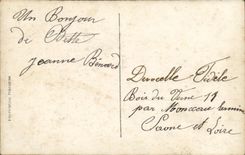 Un Bonjour
de Cette
Jeanne Bénard
Durcelle Fidèle
Bois du Verne 11
par Montceau les mines
Saone et Loire